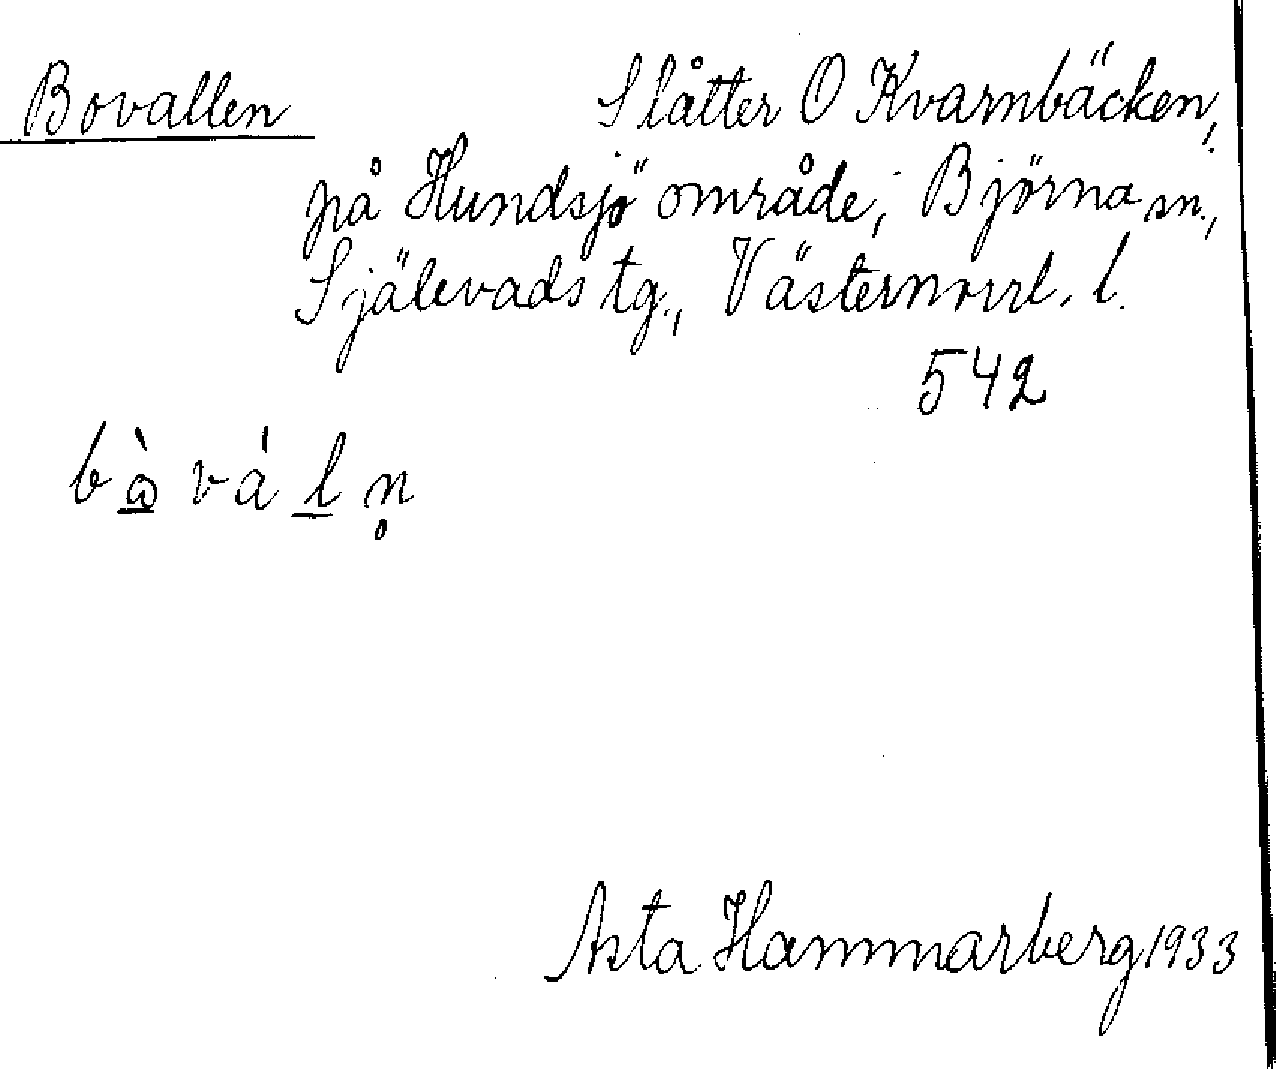 Bovallen Slåtter O Kvarnbäcken,
på Hundsjö område, Björna sn.,
Själevads tg., Västernorrl. l.
542
Asta Hammarberg 1933